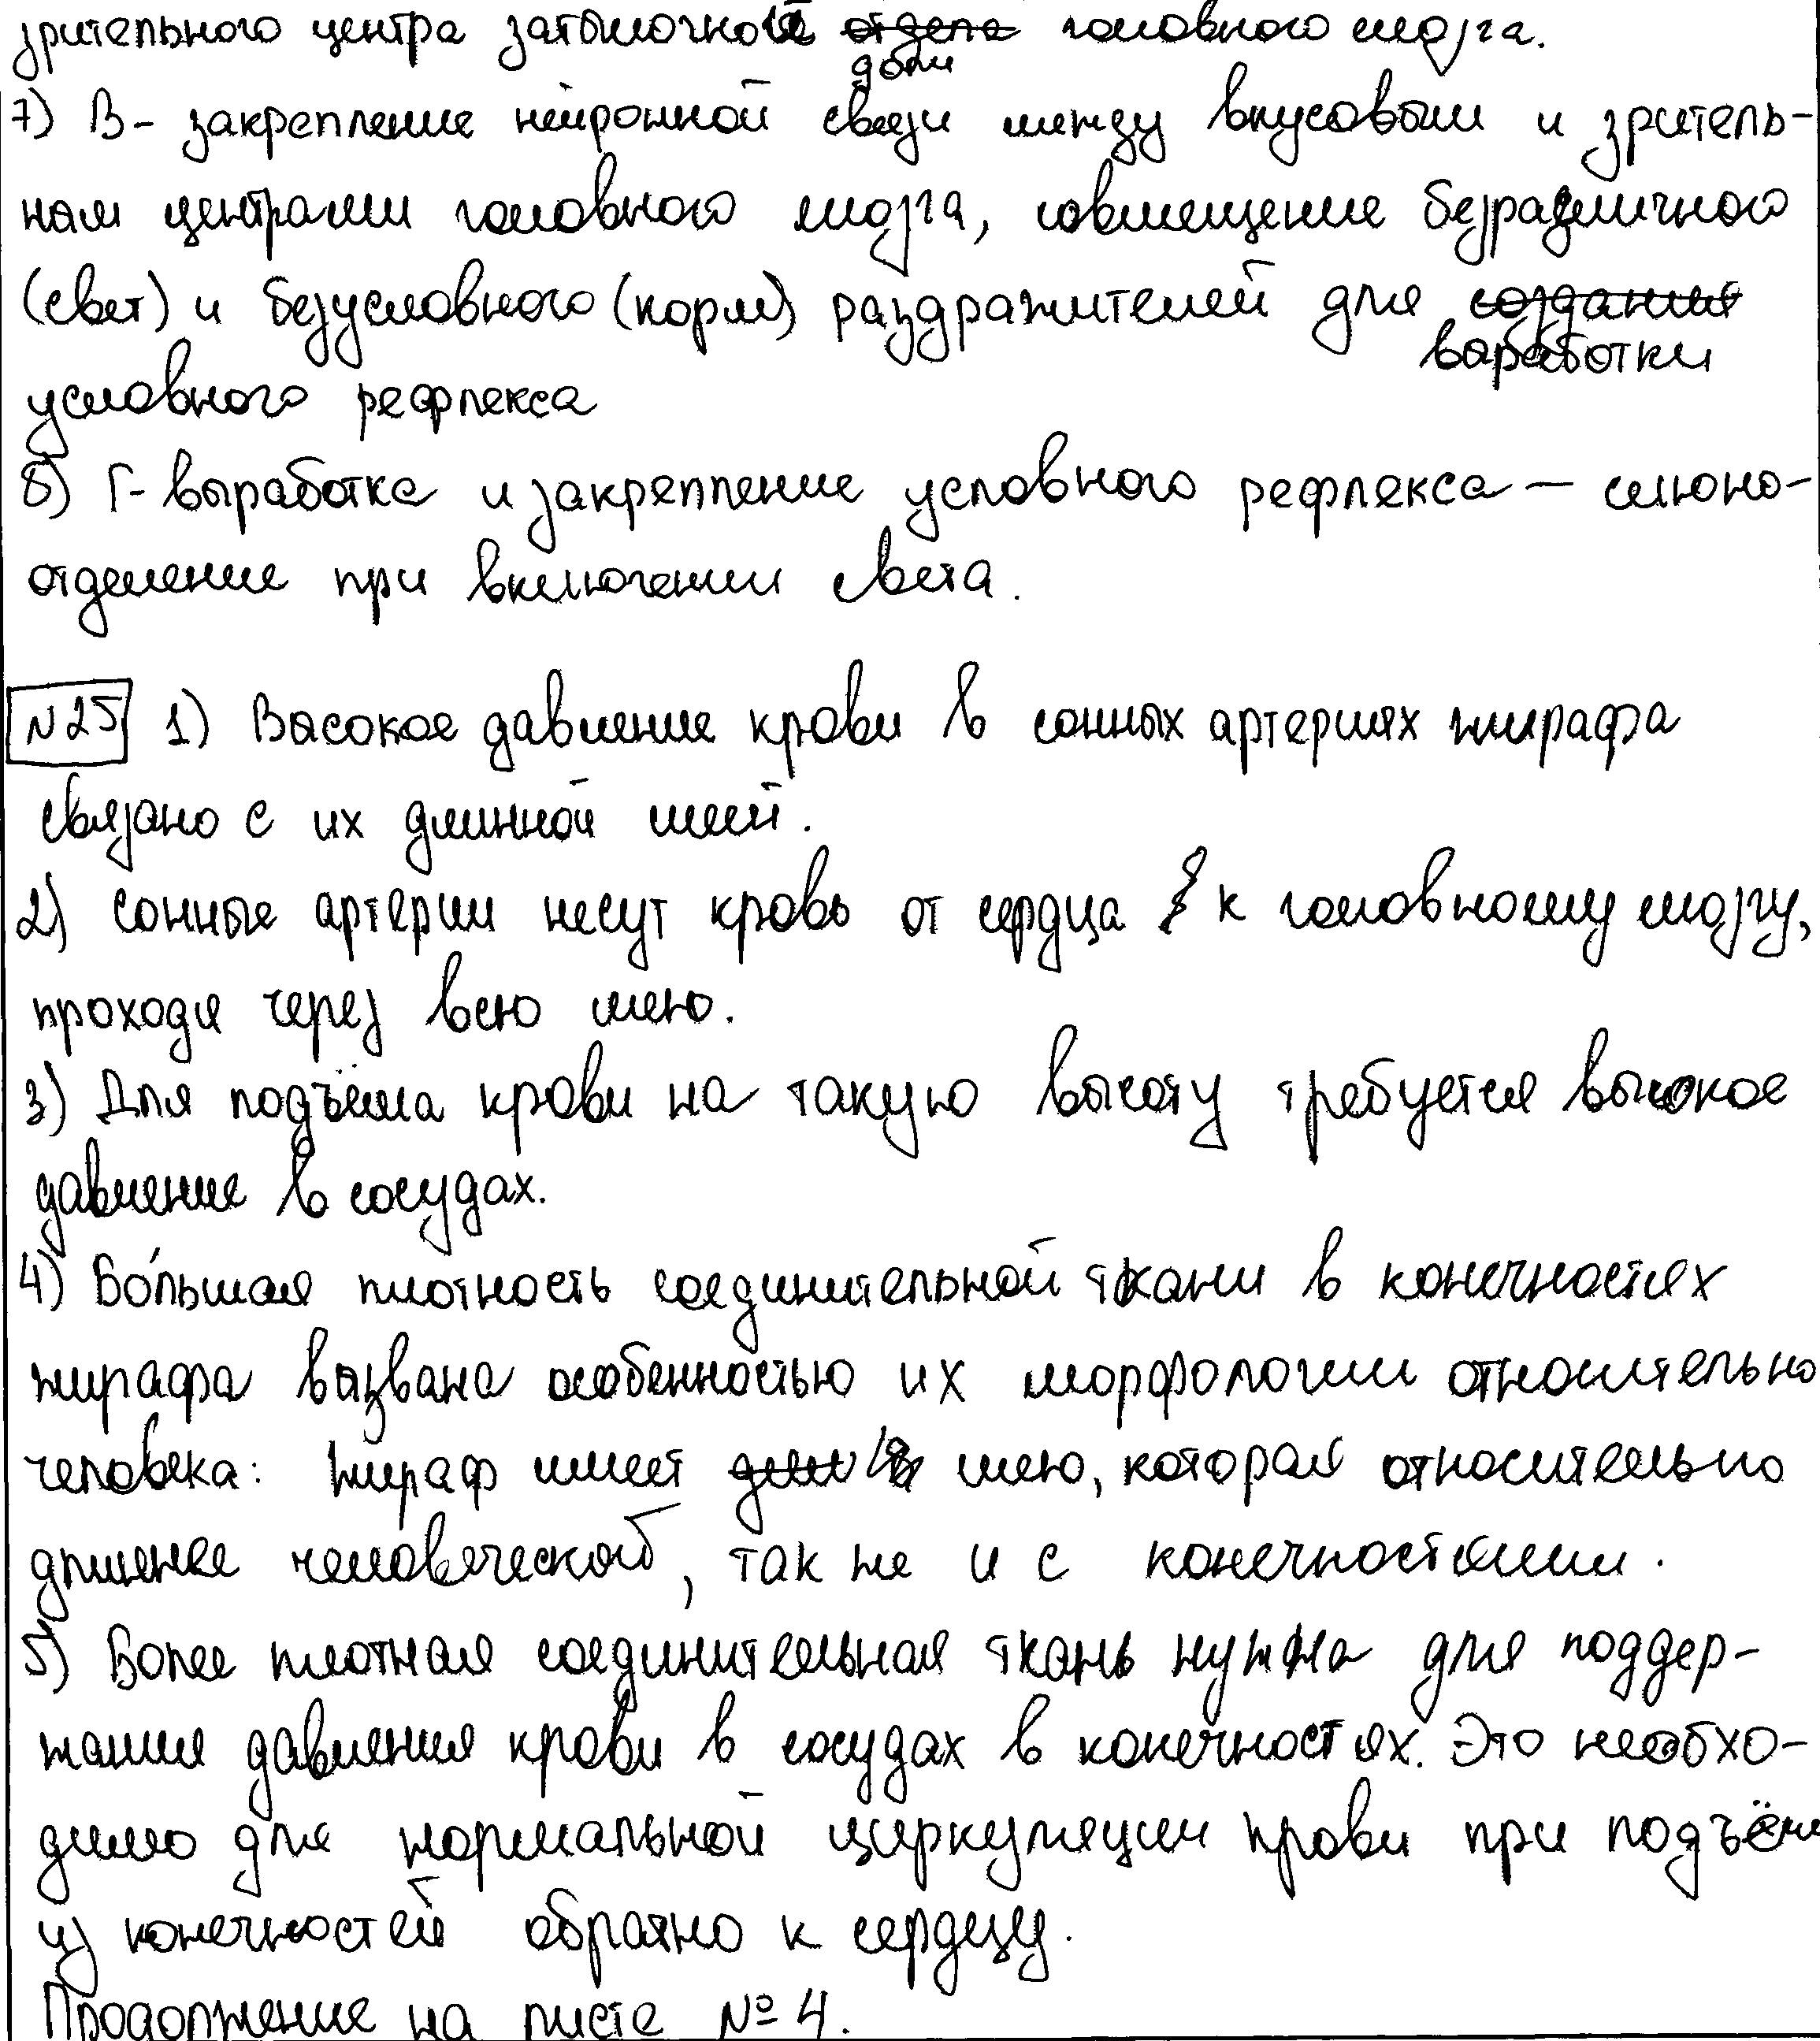 зрительного центра затылочной доли головного мозга.
7) В - закрепление нейронной связи между вкусовым и зритель-
ном центрами головного мозга, совмещение безразличного
(свет) и безусловного (корм) раздражителей для выработки
условного рефлекса
8) Г - выработка и закрепление условного рефлекса — слюно-
отделение при включении света.
№25 1) Высокое давление крови в сонных артериях жирафа
связано с их длинной шеей.
2) Сонные артерии несут кровь от сердца к головному мозгу,
проходя через всю шею.
3) Для подъёма крови на такую высоту требуется высокое
давление в сосудах.
4) Бо́льшая плотность соединительной ткани в конечностях
жирафа вызвана особенностью их морфологии относительно
человека: жираф имеет шею, которая относительно
длиннее человеческой, так же и с конечностями.
5) Более плотная соединительная ткань нужна для поддер-
жания давления крови в сосудах в конечностях. Это необхо-
димо для нормальной циркуляции крови при подъёме
из конечностей обратно к сердцу.
Продолжение на листе №4.